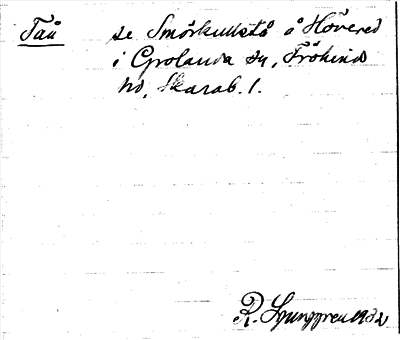 Tåå se Smörkullstå å Hövered
i Grolanda sn, Frökinds
hd, Skarab. l.
R. Ljunggren 1932